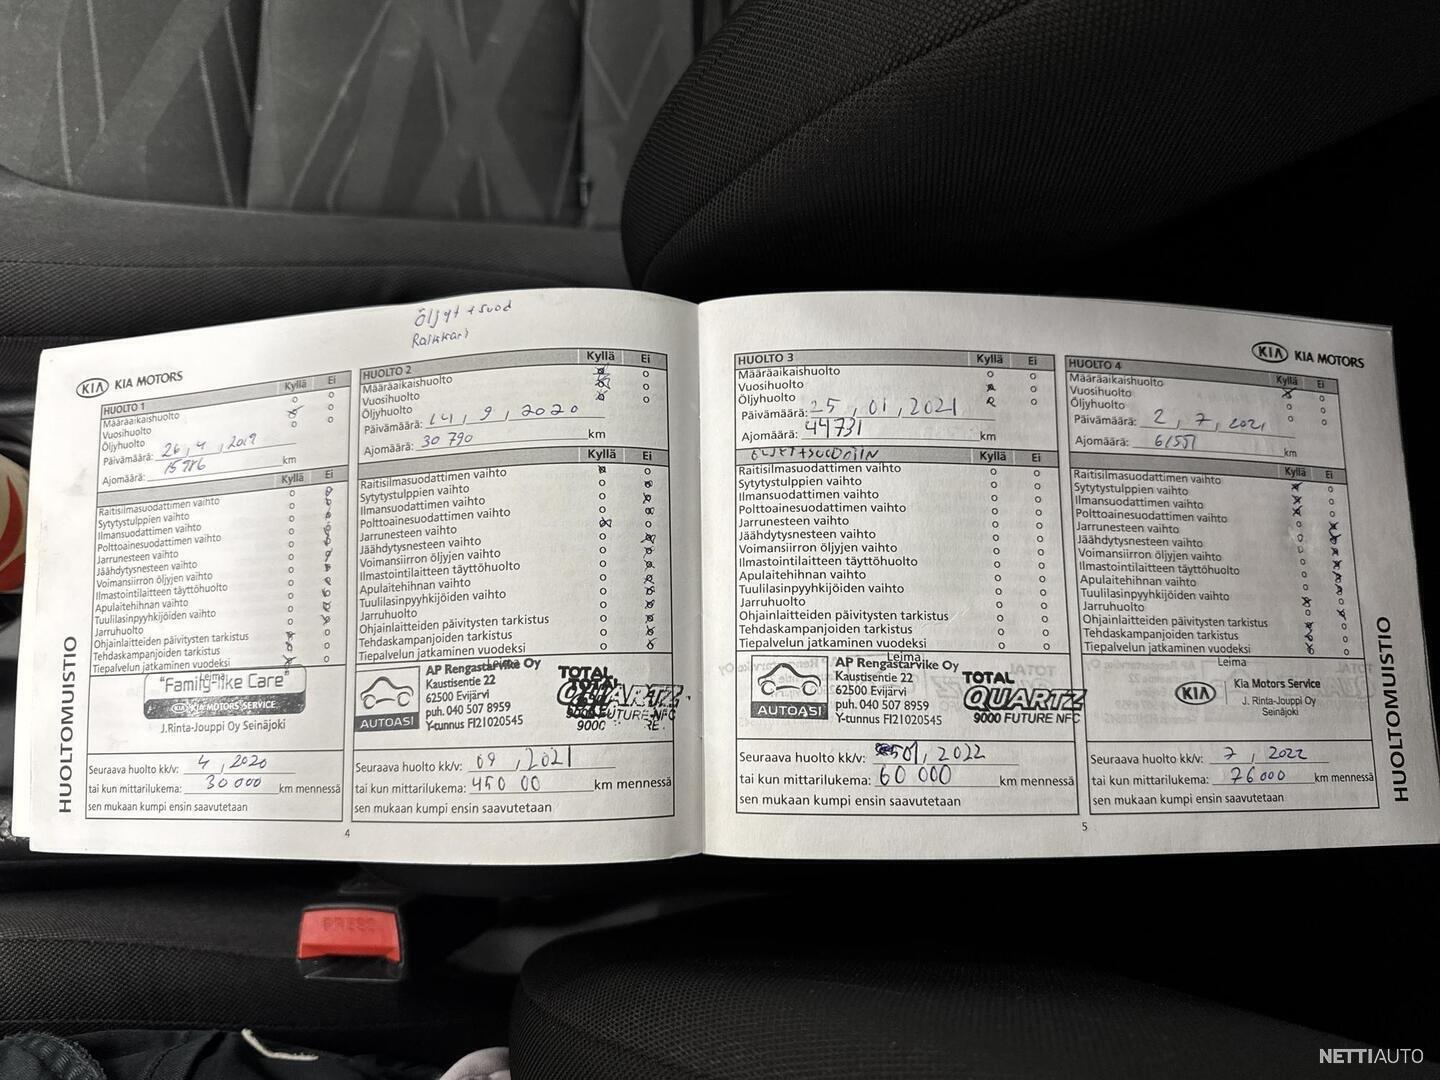 Öljyt + suod
Raikkari
KIA KIA MOTORS
HUOLTO 1
Kyllä Ei
Määräaikaishuolto
Vuosihuolto
Öljyhuolto
Päivämäärä: 26, 4, 2019
Ajomäärä: 15986 km
Kyllä Ei
Raitisilmasuodattimen vaihto
Sytytystulppien vaihto
Ilmansuodattimen vaihto
Polttoainesuodattimen vaihto
Jarrunesteen vaihto
Jäähdytysnesteen vaihto
Voimansiirron öljyjen vaihto
Ilmastointilaitteen täyttöhuolto
Apulaitehihnan vaihto
Tuulilasinpyyhkijöiden vaihto
Jarruhuolto
Ohjainlaitteiden päivitysten tarkistus
Tehdaskampanjoiden tarkistus
Tiepalvelun jatkaminen vuodeksi
Leima
"Family-like Care"
KIA KIA MOTORS SERVICE
J.Rinta-Jouppi Oy Seinäjoki
Seuraava huolto kk/v: 4, 2020
tai kun mittarilukema: 30 000 km mennessä
sen mukaan kumpi ensin saavutetaan
HUOLTO 2
Kyllä Ei
Määräaikaishuolto
Vuosihuolto
Öljyhuolto
Päivämäärä: 14, 9, 2020
Ajomäärä: 30 790 km
Kyllä Ei
Raitisilmasuodattimen vaihto
Sytytystulppien vaihto
Ilmansuodattimen vaihto
Polttoainesuodattimen vaihto
Jarrunesteen vaihto
Jäähdytysnesteen vaihto
Voimansiirron öljyjen vaihto
Ilmastointilaitteen täyttöhuolto
Apulaitehihnan vaihto
Tuulilasinpyyhkijöiden vaihto
Jarruhuolto
Ohjainlaitteiden päivitysten tarkistus
Tehdaskampanjoiden tarkistus
Tiepalvelun jatkaminen vuodeksi
AUTOASI
AP Rengastarvike Oy
Kaustisentie 22
62500 Evijärvi
puh. 040 507 8959
Y-tunnus FI21020545
TOTAL
QUARTZ
9000 FUTURE NFC
9000
Seuraava huolto kk/v: 09, 2021
tai kun mittarilukema: 450 00 km mennessä
sen mukaan kumpi ensin saavutetaan
HUOLTOMUISTIO
4
HUOLTO 3
Kyllä Ei
Määräaikaishuolto
Vuosihuolto
Öljyhuolto
Päivämäärä: 25, 01, 2021
Ajomäärä: 44731 km
Kyllä Ei
Raitisilmasuodattimen vaihto
Sytytystulppien vaihto
Ilmansuodattimen vaihto
Polttoainesuodattimen vaihto
Jarrunesteen vaihto
Jäähdytysnesteen vaihto
Voimansiirron öljyjen vaihto
Ilmastointilaitteen täyttöhuolto
Apulaitehihnan vaihto
Tuulilasinpyyhkijöiden vaihto
Jarruhuolto
Ohjainlaitteiden päivitysten tarkistus
Tehdaskampanjoiden tarkistus
Tiepalvelun jatkaminen vuodeksi
Leima
AUTOASI
AP Rengastarvike Oy
Kaustisentie 22
62500 Evijärvi
puh. 040 507 8959
Y-tunnus FI21020545
TOTAL
QUARTZ
9000 FUTURE NFC
Seuraava huolto kk/v: 01, 2022
tai kun mittarilukema: 60 000 km mennessä
sen mukaan kumpi ensin saavutetaan
KIA KIA MOTORS
HUOLTO 4
Kyllä Ei
Määräaikaishuolto
Vuosihuolto
Öljyhuolto
Päivämäärä: 2, 7, 2021
Ajomäärä: 61551 km
Kyllä Ei
Raitisilmasuodattimen vaihto
Sytytystulppien vaihto
Ilmansuodattimen vaihto
Polttoainesuodattimen vaihto
Jarrunesteen vaihto
Jäähdytysnesteen vaihto
Voimansiirron öljyjen vaihto
Ilmastointilaitteen täyttöhuolto
Apulaitehihnan vaihto
Tuulilasinpyyhkijöiden vaihto
Jarruhuolto
Ohjainlaitteiden päivitysten tarkistus
Tehdaskampanjoiden tarkistus
Tiepalvelun jatkaminen vuodeksi
Leima
KIA
Kia Motors Service
J. Rinta-Jouppi Oy
Seinäjoki
Seuraava huolto kk/v: 7, 2022
tai kun mittarilukema: 76000 km mennessä
sen mukaan kumpi ensin saavutetaan
HUOLTOMUISTIO
5
PRESS
NETTIAUTO